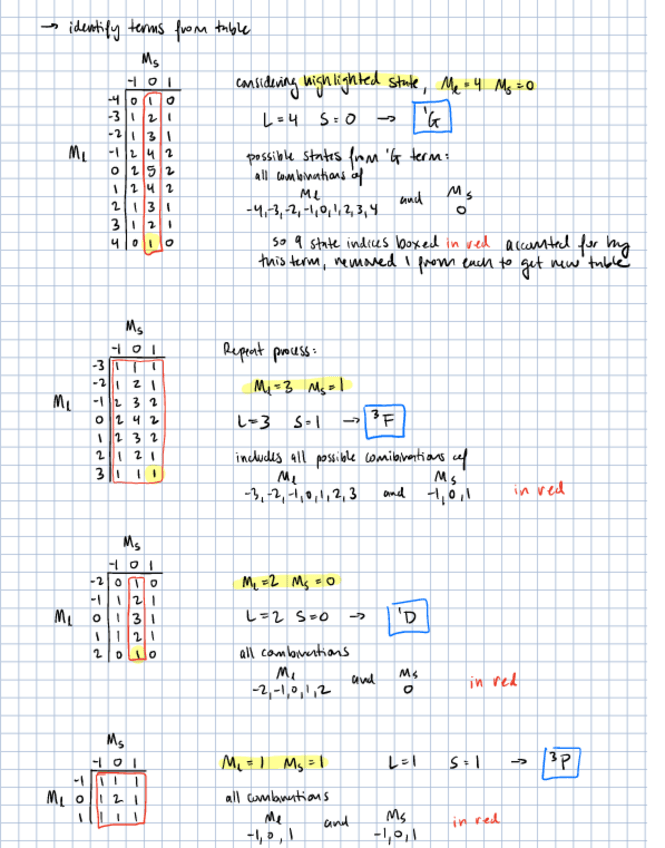 → identify terms from table
Ms
-1 0 1
-4 0 1 0
-3 1 2 1
-2 1 3 1
ML -1 2 4 2
0 2 5 2
1 2 4 2
2 1 3 1
3 1 2 1
4 0 1 0
considering highlighted state, Mℓ = 4 Ms = 0
L = 4 S = 0 → ¹G
possible states from ¹G term:
all combinations of
Mℓ and Ms
-4,-3,-2,-1,0,1,2,3,4 0
so 9 state indices boxed in red accounted for by
this term, removed 1 from each to get new table
Ms
-1 0 1
-3 1 1 1
-2 1 2 1
ML -1 2 3 2
0 2 4 2
1 2 3 2
2 1 2 1
3 1 1 1
Repeat process:
Mℓ = 3 Ms = 1
L = 3 S = 1 → ³F
includes all possible combinations of
Mℓ Ms
-3,-2,-1,0,1,2,3 and -1,0,1 in red
Ms
-1 0 1
-2 0 1 0
-1 1 2 1
ML 0 1 3 1
1 1 2 1
2 0 1 0
Mℓ = 2 Ms = 0
L = 2 S = 0 → ¹D
all combinations
Mℓ and Ms in red
-2,-1,0,1,2 0
Ms
-1 0 1
-1 1 1 1
ML 0 1 2 1
1 1 1 1
Mℓ = 1 Ms = 1 L = 1 S = 1 → ³P
all combinations
Mℓ and Ms in red
-1,0,1 -1,0,1